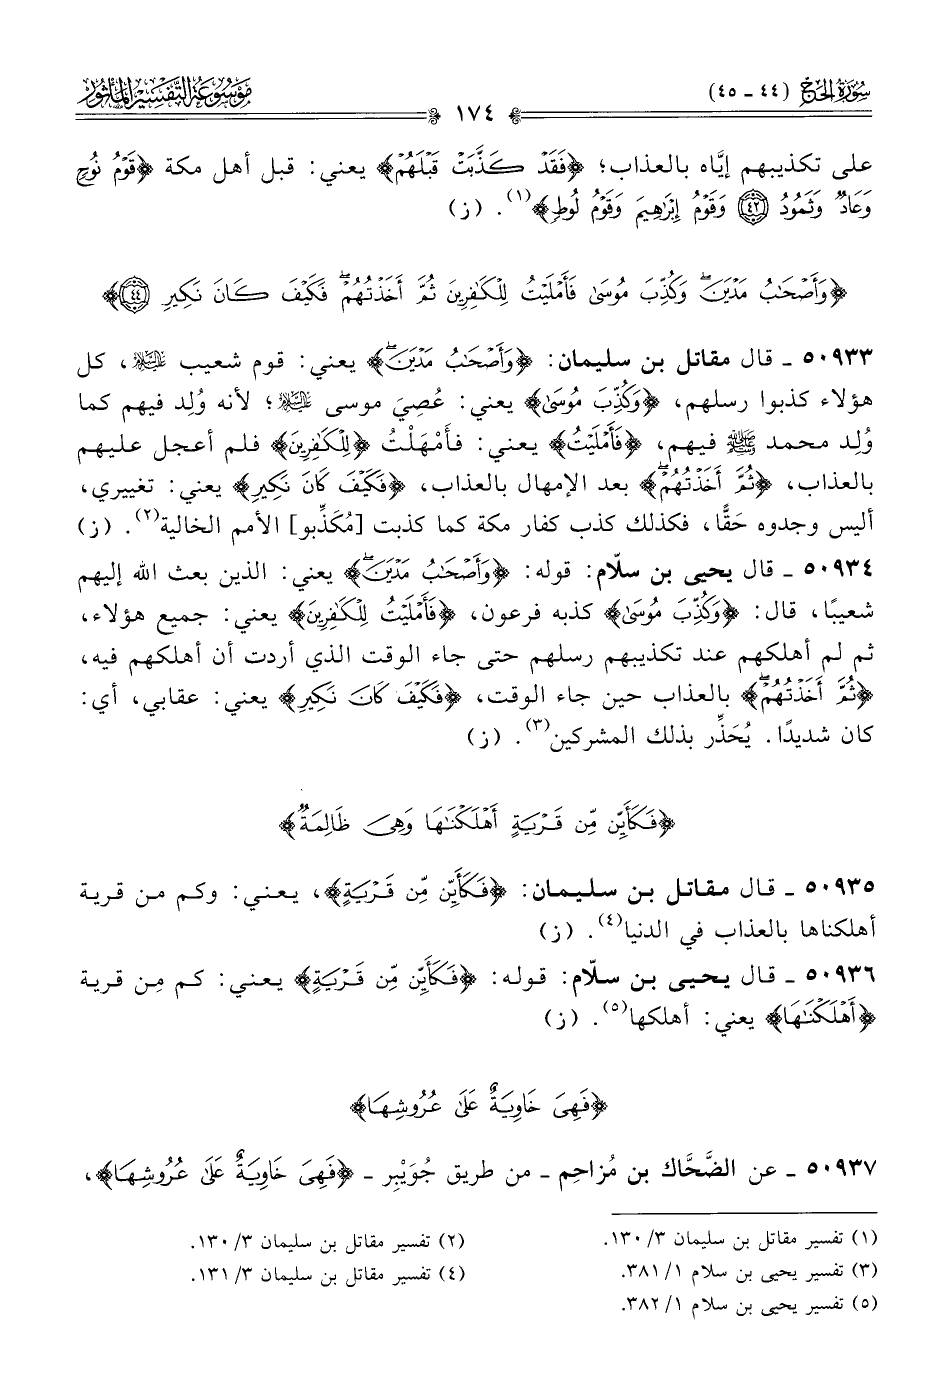 سُورَةُ الحَجّ (٤٤ - ٤٥)
مَوْسُوعَةُ التَّفْسِيرِ المَأْثُورِ
١٧٤
على تكذيبهم إيَّاه بالعذاب؛ ﴿فَقَدْ كَذَّبَتْ قَبْلَهُمْ﴾ يعني: قبل أهل مكة ﴿قَوْمُ نُوحٍ
وَعَادٌ وَثَمُودُ ٤٢ وَقَوْمُ إِبْرَاهِيمَ وَقَوْمُ لُوطٍ﴾(١). (ز)
﴿وَأَصْحَابُ مَدْيَنَ وَكُذِّبَ مُوسَىٰ فَأَمْلَيْتُ لِلْكَافِرِينَ ثُمَّ أَخَذْتُهُمْ فَكَيْفَ كَانَ نَكِيرِ ٤٤﴾
٥٠٩٣٣ - قال مقاتل بن سليمان: ﴿وَأَصْحَابُ مَدْيَنَ﴾ يعني: قوم شعيب عليه السلام، كل
هؤلاء كذبوا رسلهم، ﴿وَكُذِّبَ مُوسَىٰ﴾ يعني: عُصِيَ موسى عليه السلام؛ لأنه وُلِد فيهم كما
وُلِد محمد ﷺ فيهم، ﴿فَأَمْلَيْتُ﴾ يعني: فأَمْهَلْتُ ﴿لِلْكَافِرِينَ﴾ فلم أعجل عليهم
بالعذاب، ﴿ثُمَّ أَخَذْتُهُمْ﴾ بعد الإمهال بالعذاب، ﴿فَكَيْفَ كَانَ نَكِيرِ﴾ يعني: تغييري،
أليس وجدوه حَقًّا، فكذلك كذب كفار مكة كما كذبت [مُكَذِّبو] الأمم الخالية(٢). (ز)
٥٠٩٣٤ - قال يحيى بن سلّام: قوله: ﴿وَأَصْحَابُ مَدْيَنَ﴾ يعني: الذين بعث الله إليهم
شعيبًا، قال: ﴿وَكُذِّبَ مُوسَىٰ﴾ كذبه فرعون، ﴿فَأَمْلَيْتُ لِلْكَافِرِينَ﴾ يعني: جميع هؤلاء،
ثم لم أهلكهم عند تكذيبهم رسلهم حتى جاء الوقت الذي أردت أن أهلكهم فيه،
﴿ثُمَّ أَخَذْتُهُمْ﴾ بالعذاب حين جاء الوقت، ﴿فَكَيْفَ كَانَ نَكِيرِ﴾ يعني: عقابي، أي:
كان شديدًا. يُحَذِّر بذلك المشركين(٣). (ز)
﴿فَكَأَيِّن مِّن قَرْيَةٍ أَهْلَكْنَاهَا وَهِىَ ظَالِمَةٌ﴾
٥٠٩٣٥ - قال مقاتل بن سليمان: ﴿فَكَأَيِّن مِّن قَرْيَةٍ﴾، يعني: وكم من قرية
أهلكناها بالعذاب في الدنيا(٤). (ز)
٥٠٩٣٦ - قال يحيى بن سلّام: قوله: ﴿فَكَأَيِّن مِّن قَرْيَةٍ﴾ يعني: كم مِن قرية
﴿أَهْلَكْنَاهَا﴾ يعني: أهلكها(٥). (ز)
﴿فَهِىَ خَاوِيَةٌ عَلَىٰ عُرُوشِهَا﴾
٥٠٩٣٧ - عن الضَّحَّاك بن مُزاحِم - من طريق جُوَيْبِر - ﴿فَهِىَ خَاوِيَةٌ عَلَىٰ عُرُوشِهَا﴾،
(١) تفسير مقاتل بن سليمان ٣/ ١٣٠.
(٢) تفسير مقاتل بن سليمان ٣/ ١٣٠.
(٣) تفسير يحيى بن سلام ١/ ٣٨١.
(٤) تفسير مقاتل بن سليمان ٣/ ١٣١.
(٥) تفسير يحيى بن سلام ١/ ٣٨٢.